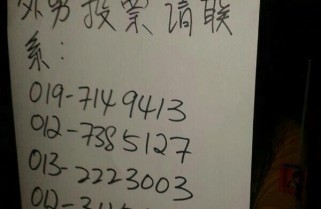 外劳投票请联
系:
019-7149413
012-7385127
013-2223003